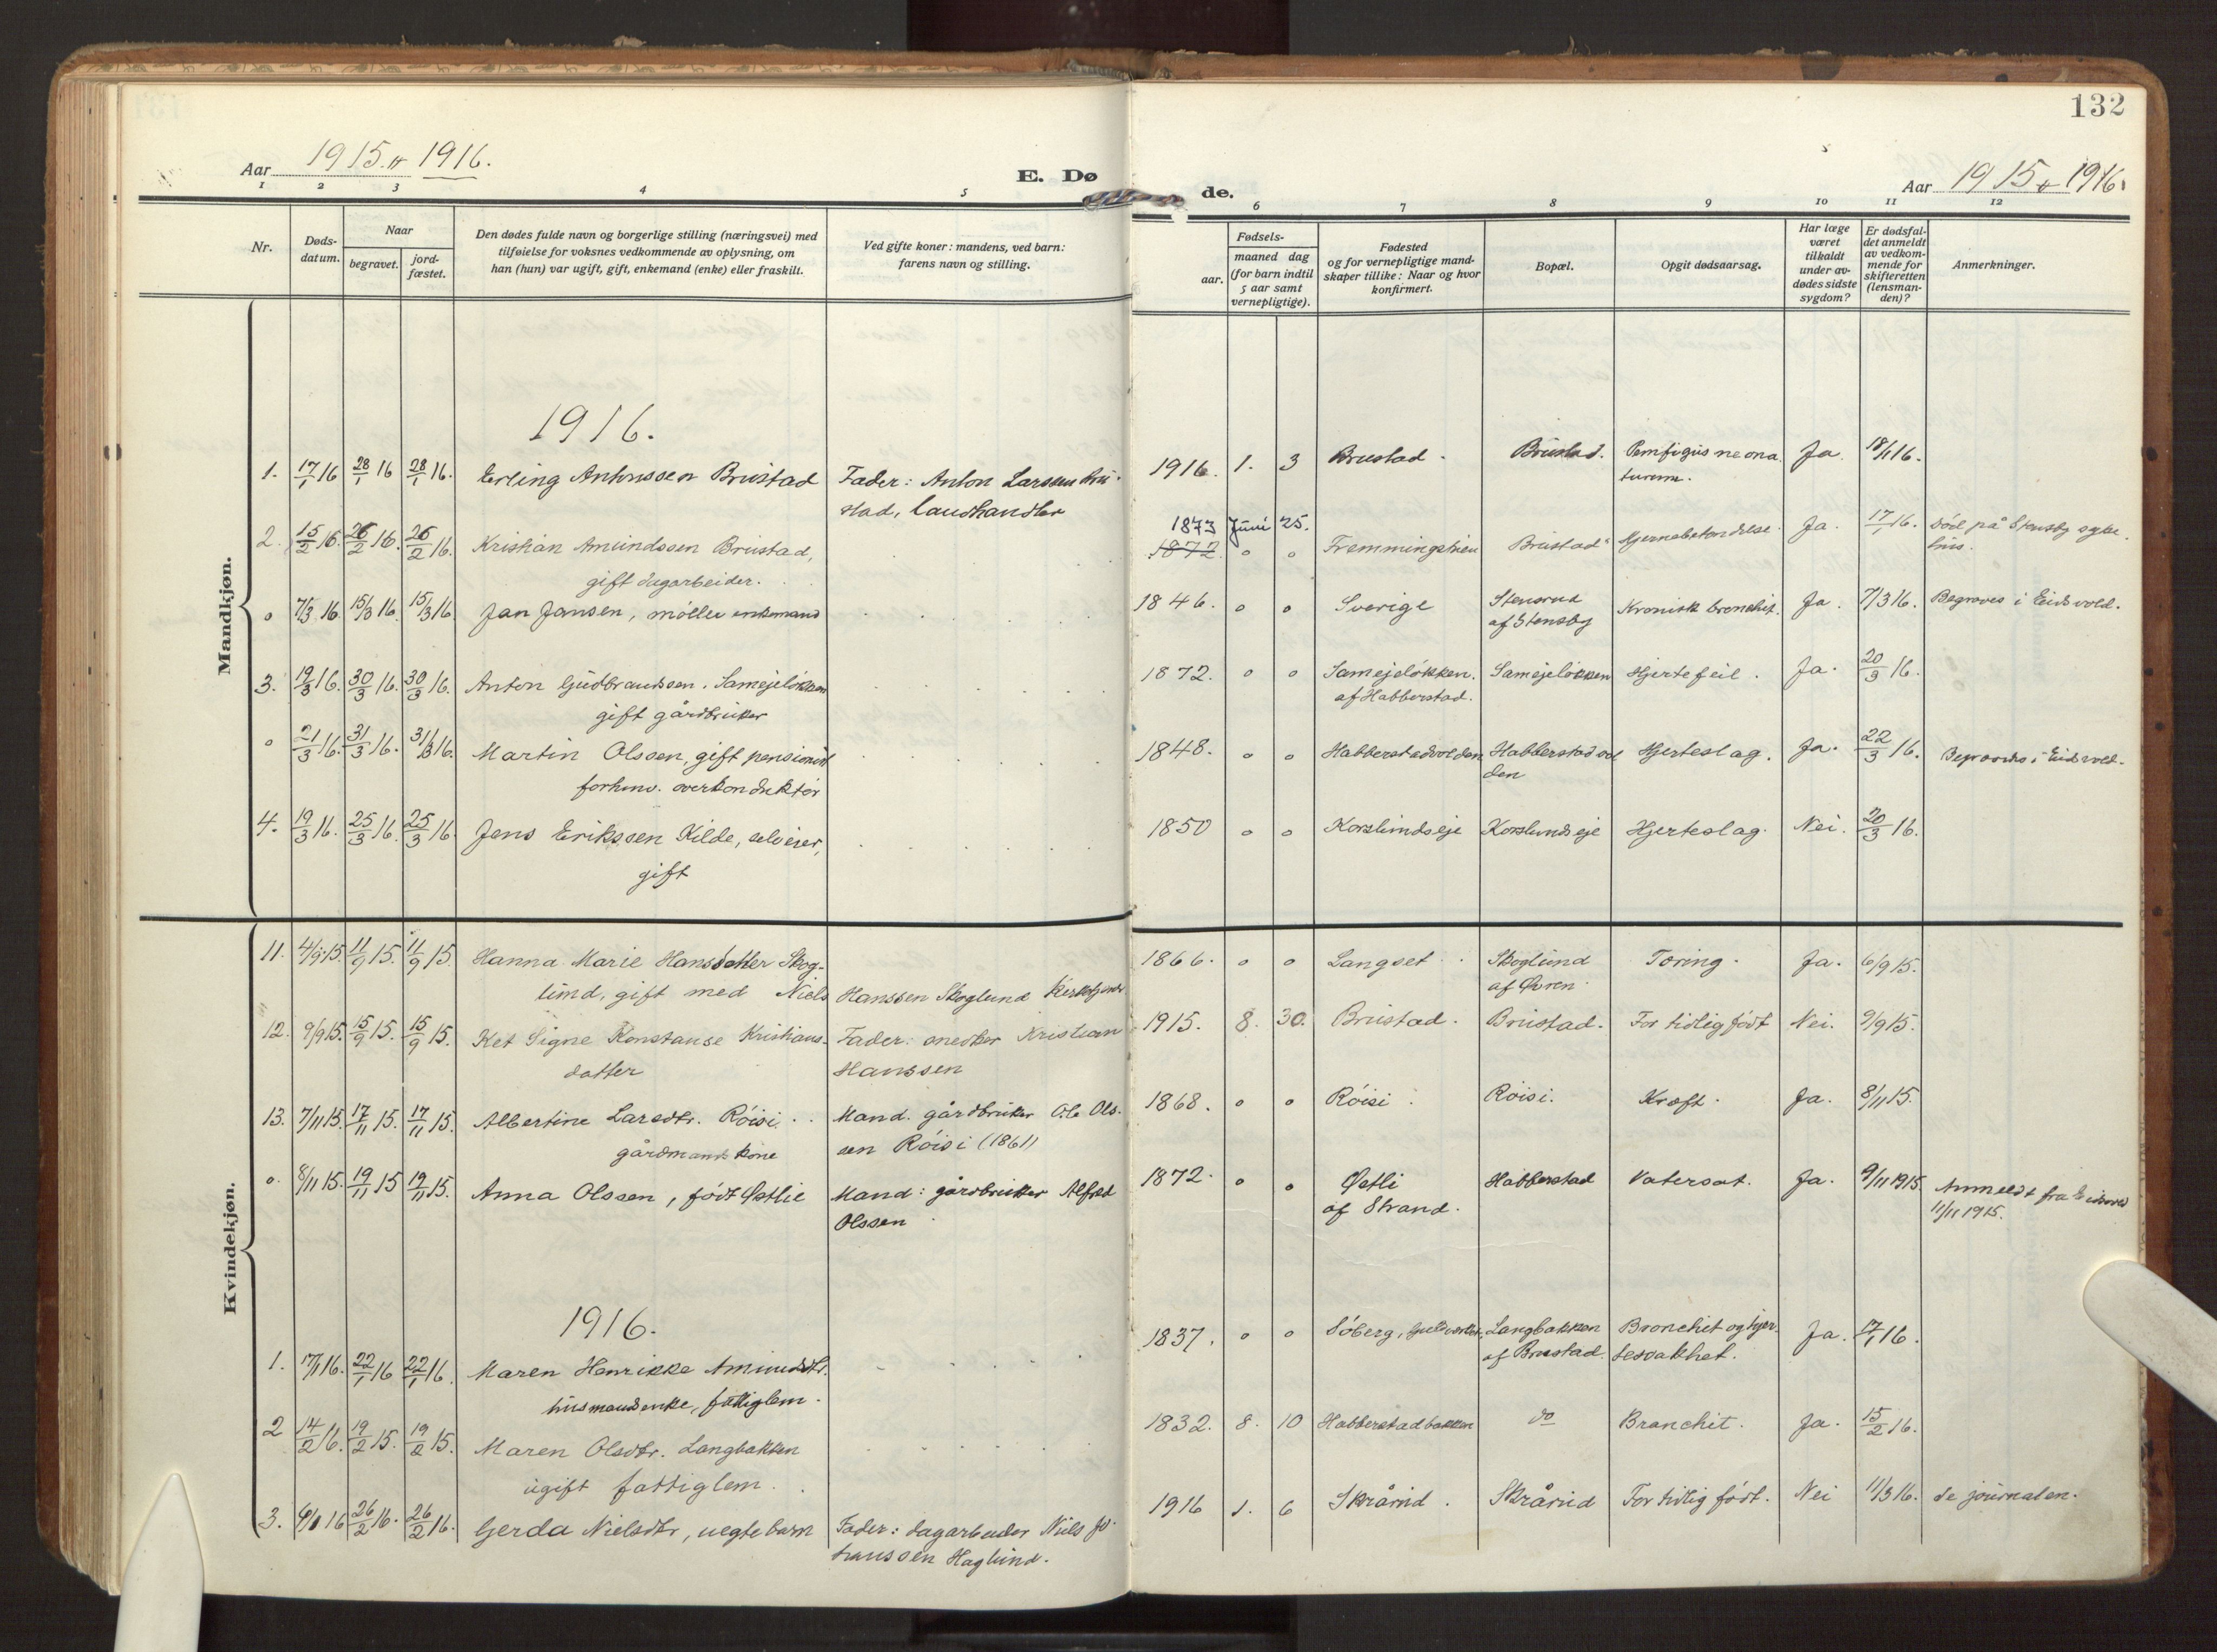 132
Aar 1915 & 1916.
E. Dø
de.
Aar 1915 & 1916.
1 2 3 4 5 6 7 8 9 10 11 12
Nr.
Døds-
datum.
Naar
begravet.
jord-
fæstet.
Den dødes fulde navn og borgerlige stilling (næringsvei) med
tilføielse for voksnes vedkommende av oplysning, om
han (hun) var ugift, gift, enkemand (enke) eller fraskilt.
Ved gifte koner: mandens, ved barn:
farens navn og stilling.
Fødsels-
aar.
maaned dag
(for barn indtil
5 aar samt
vernepligtige).
Fødested
og for vernepligtige mand-
skaper tillike: Naar og hvor
konfirmert.
Bopæl.
Opgit dødsaarsag.
Har læge
været
tilkaldt
under av-
dødes sidste
sygdom?
Er dødsfal-
det anmeldt
av vedkom-
mende for
skifteretten
(lensman-
den)?
Anmerkninger.
Mandkjøn.
1916.
1. 17/1 16 28/1 16 28/1 16. Erling Antonssen Brustad Fader: Anton Larssen Bru-
stad, landhandler
1916. 1. 3 Brustad. Brustad. Pemfigus neona
turum. Ja. 18/1 16.
2. 15/2 16. 26/2 16. 26/2 16. Kristian Amundssen Brustad,
gift dagarbeider.
1873 Juni 25.
1872. o o Fremmingstrien Brustad Hjernebetendelse. Ja. 17/1 16. Död på Stensby syke
hus.
o 7/3 16. 15/3 16. 15/3 16. Jan Jansen, møller enkemand
1846. o o Sverige Stensrud
af Stensby Kronisk bronchit. Ja. 7/3 16. Begraves i Eidsvold.
3. 19/3 16. 30/3 16. 30/3 16. Anton Gudbrandssen. Samejeløkken
gift gårdbruker
1872. o o Samejeløkken.
af Habberstad. Samejeløkken Hjertefeil. Ja. 20/3 16.
o 21/3 16. 31/3 16. 31/3 16. Martin Olssen, gift pensionist
forhenv. overkonduktør
1848. o o Habberstadvolden Habberstadvol
den Hjerteslag. Ja. 22/3 16. Begraves i Eidsvold.
4. 19/3 16. 25/3 16. 25/3 16. Jens Erikssen Kilde, selveier,
gift
1850 o o Korslundseje Korslundseje Hjerteslag. Nei. 20/3 16.
Kvindekjøn.
11. 4/9 15. 11/9 15. 11/9 15. Hanna Marie Hansdatter Skog-
lund, gift med Niels Hanssen Skoglund
1866. o o Langset. Skoglund
af Øvren. Tæring. Ja. 6/9 15.
12. 9/9 15. 15/9 15. 15/9 15. Ket Signe Konstanse Kristians-
datter Fader: snedker Kristian
Hanssen
1915. 8. 30. Brustad. Brustad. For tidlig født Nei. 9/9 15.
13. 7/11 15. 17/11 15. 17/11 15. Albertine Larsdtr. Röisi.
gårdmandskone Mand. gårdbruker Ole Ols-
sen Röisi (1861)
1868. o o Röisi. Röisi. Kræft. Ja. 8/11 15.
o. 8/11 15. 19/11 15 19/11 15. Anna Olssen, født Østlie Mand: gårdbruker Alfred
Olssen
1872. o o Østli
af Strand. Habberstad Vatersot. Ja. 9/11 1915 Anmeldt fra Eidsvold
11/11 1915.
1916.
1. 17/1 16. 22/1 16 22/1 16. Maren Henrikke Amundsdtr.
husmandsenke, fattiglem.
1837. o o Söberg, Langbakken
af Brustad. Bronchit og hjer-
tesvakhet. Ja. 17/1 16.
2 14/2 16. 19/2 15. 19/2 15. Maren Olsdtr. Langbakken
ugift fattiglem.
1832. 8. 10 Habberstadbakken do Bronchit. Ja. 15/2 16.
3. 6/1 16 26/2 16. 26/2 16. Gerda Nielsdtr, uegte barn Fader: dagarbeider Niels Jo-
hanssen Haglund.
1916 1. 6 Skrårud. Skrårud For tidlig født. Nei 11/3 16. se journalen.